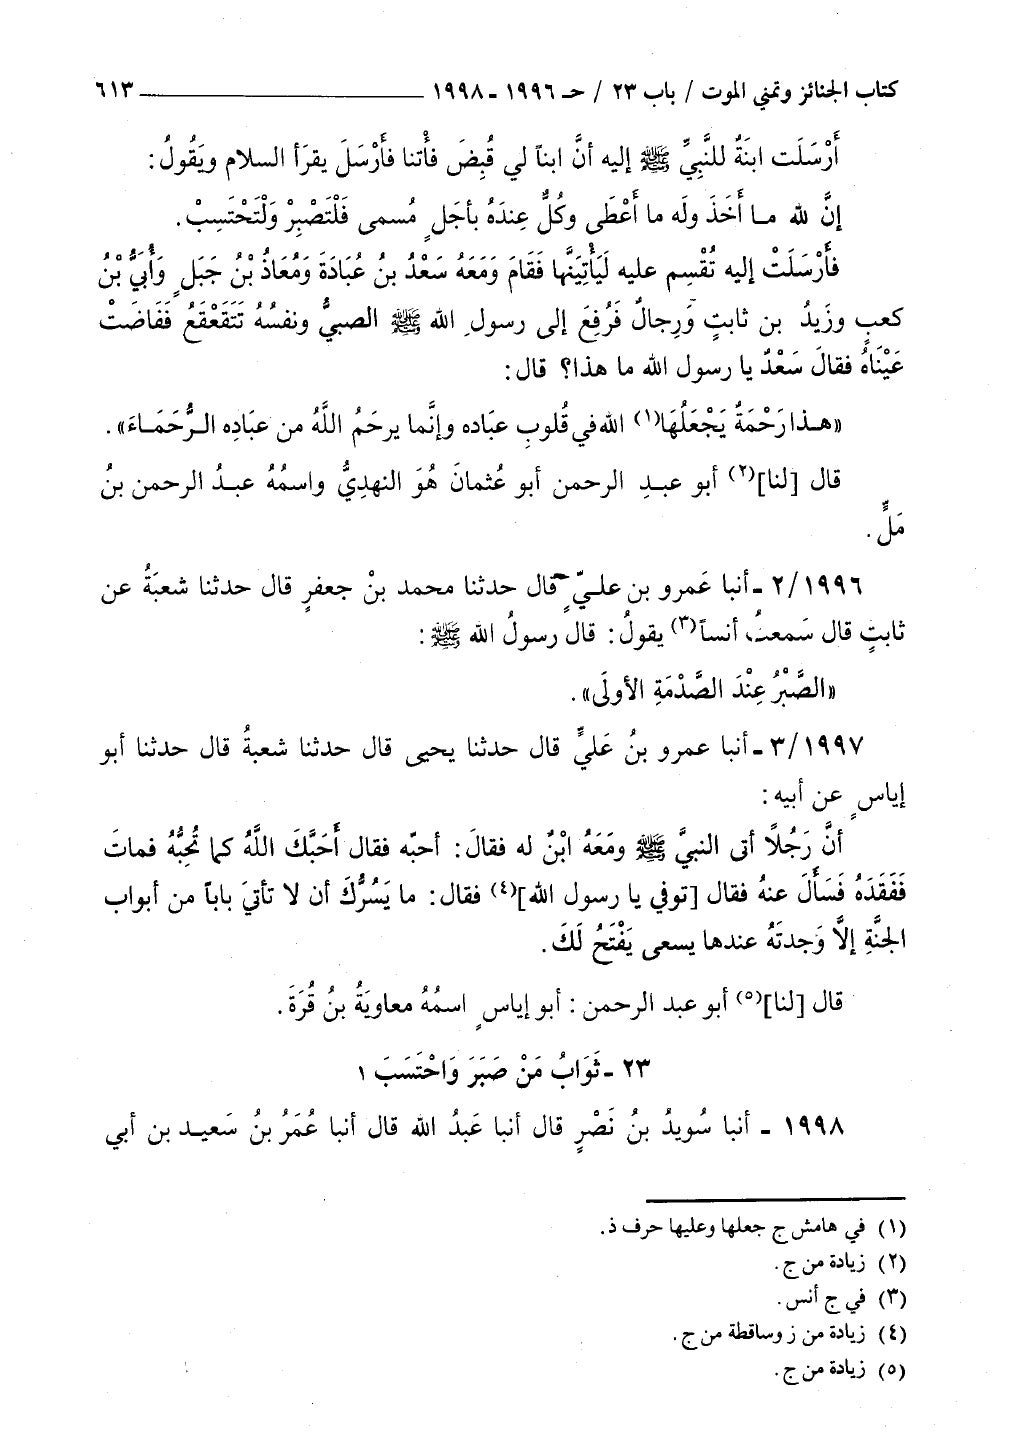 كتاب الجنائز وتمني الموت / باب ٢٣ / حـ ١٩٩٦ ـ ١٩٩٨ ـــــــــــ ٦١٣
أَرْسَلَت ابنَةٌ للنَّبِيِّ ﷺ إليه أنَّ ابناً لي قُبِضَ فأْتنا فأَرْسَلَ يقرَأ السلام ويَقُولُ:
إنَّ لله ما أَخَذَ ولَه ما أَعْطَى وكُلٌّ عِندَهُ بأجَلٍ مُسمى فَلْتَصْبِرْ وَلْتَحْتَسِبْ.
فأَرْسَلَتْ إليه تُقْسِم عليه لَيَأْتِيَنَّها فَقَامَ وَمَعَهُ سَعْدُ بنُ عُبَادَةَ وَمُعَاذُ بْنُ جَبَلٍ وَأُبَيُّ بْنُ
كعبٍ وزَيدُ بن ثابتٍ وَرِجالٌ فَرُفِعَ إلى رسولِ الله ﷺ الصبيُّ ونفسُهُ تَتَقَعْقَعُ فَفَاضَتْ
عَيْنَاهُ فقالَ سَعْدٌ يا رسول الله ما هذا؟ قال:
«هـذا رَحْمَةٌ يَجْعَلُهَا(١) الله في قُلوبِ عبَاده وإنَّما يرحَمُ اللَّهُ من عبَادِه الـرُّحَمَـاءَ».
قال [لنا](٢) أبو عبـدِ الرحمن أبو عُثمانَ هُوَ النهدِيُّ واسمُهُ عبـدُ الرحمن بنُ
مَلٍّ.
٢/١٩٩٦ ـ أنبا عَمرو بن علـيٍّ قال حدثنا محمد بنْ جعفرٍ قال حدثنا شعبَةُ عن
ثابتٍ قال سَمعتُ أنساً(٣) يقولُ: قال رسولُ الله ﷺ:
«الصَّبْرُ عِنْدَ الصَّدْمَةِ الأولَى».
٣/١٩٩٧ ـ أنبا عمرو بنُ عَليٍّ قال حدثنا يحيى قال حدثنا شعبةُ قال حدثنا أبو
إياسٍ عن أبيه:
أنَّ رَجُلًا أتى النبيَّ ﷺ ومَعَهُ ابْنٌ له فقالَ: أحبّه فقال أَحَبَّكَ اللَّهُ كما تُحِبُّهُ فماتَ
فَفَقَدَهُ فَسَأَلَ عنهُ فقال [توفي يا رسول الله](٤) فقال: ما يَسُرُّكَ أن لا تأتيَ باباً من أبواب
الجنَّةِ إلَّا وَجدتَهُ عندها يسعى يَفْتَحُ لَكَ.
قال [لنا](٥) أبو عبد الرحمن: أبو إياسٍ اسمُهُ معاويَةُ بنُ قُرَةَ.
٢٣ ـ ثَوَابُ مَنْ صَبَرَ وَاحْتَسَبَ ١
١٩٩٨ ـ أنبا سُويدُ بنُ نَصْرٍ قال أنبا عَبدُ الله قال أنبا عُمَرُ بنُ سَعيـد بن أبي
(١) في هامش ج جعلها وعليها حرف ذ.
(٢) زيادة من ج.
(٣) في ج أنس.
(٤) زيادة من ز وساقطة من ج.
(٥) زيادة من ج.